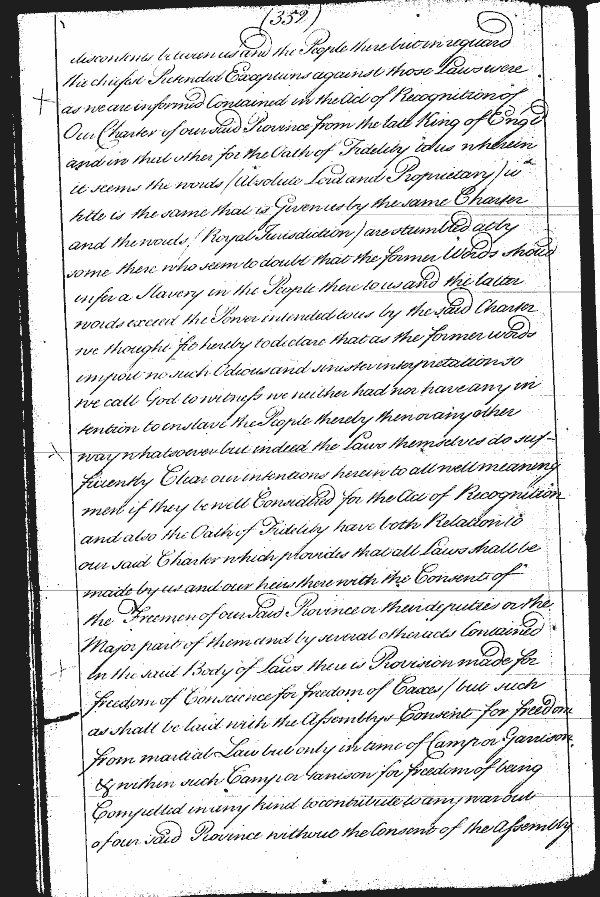 (359)
discontents between us and the People there but in reguard
the chiefest Pretended Exceptions against those Laws were
as we are informed Contained in the Act of Recognition of
Our Charter of our said Province from the late King of Engld
and in that other for the Oath of Fidelity to us wherein
it seems the words (Absolute Lord and Proprietary) is
title is the same that is Given us by the same Charter
and the words (Royal Jurisdiction) are stumbled at by
some there who seem to doubt that the former Words should
infer a Slavery in the People there to us and the latter
words exceed the Power intended to us by the said Charter
we thought fit hereby to declare that as the former words
import no such Odious and sinister interpretation so
we call God to witness we neither had nor have any in
tention to enslave the People thereby then or any other
way whatsoever but indeed the Laws themselves do suf-
ficiently Clear our intentions herein to all well meaning
men if they be well Considered for the Act of Recognition
and also the Oath of Fidelity have both Relation to
our said Charter which provides that all Laws shall be
made by us and our heirs there with the Consent of
the Freemen of our Said Province or their deputies or the
Major part of them and by several other acts Contained
in the said Body of Laws there is Provision made for
freedom of Conscience for freedom of Taxes / but such
as shall be laid with the Assemblys Consent for freedom
from martial Law but only in time of Camp or Garrison
& within such Camp or Garrison for freedom of being
Compelled in any kind to contribute to any war out
of our said Province without the Consent of the Assembly